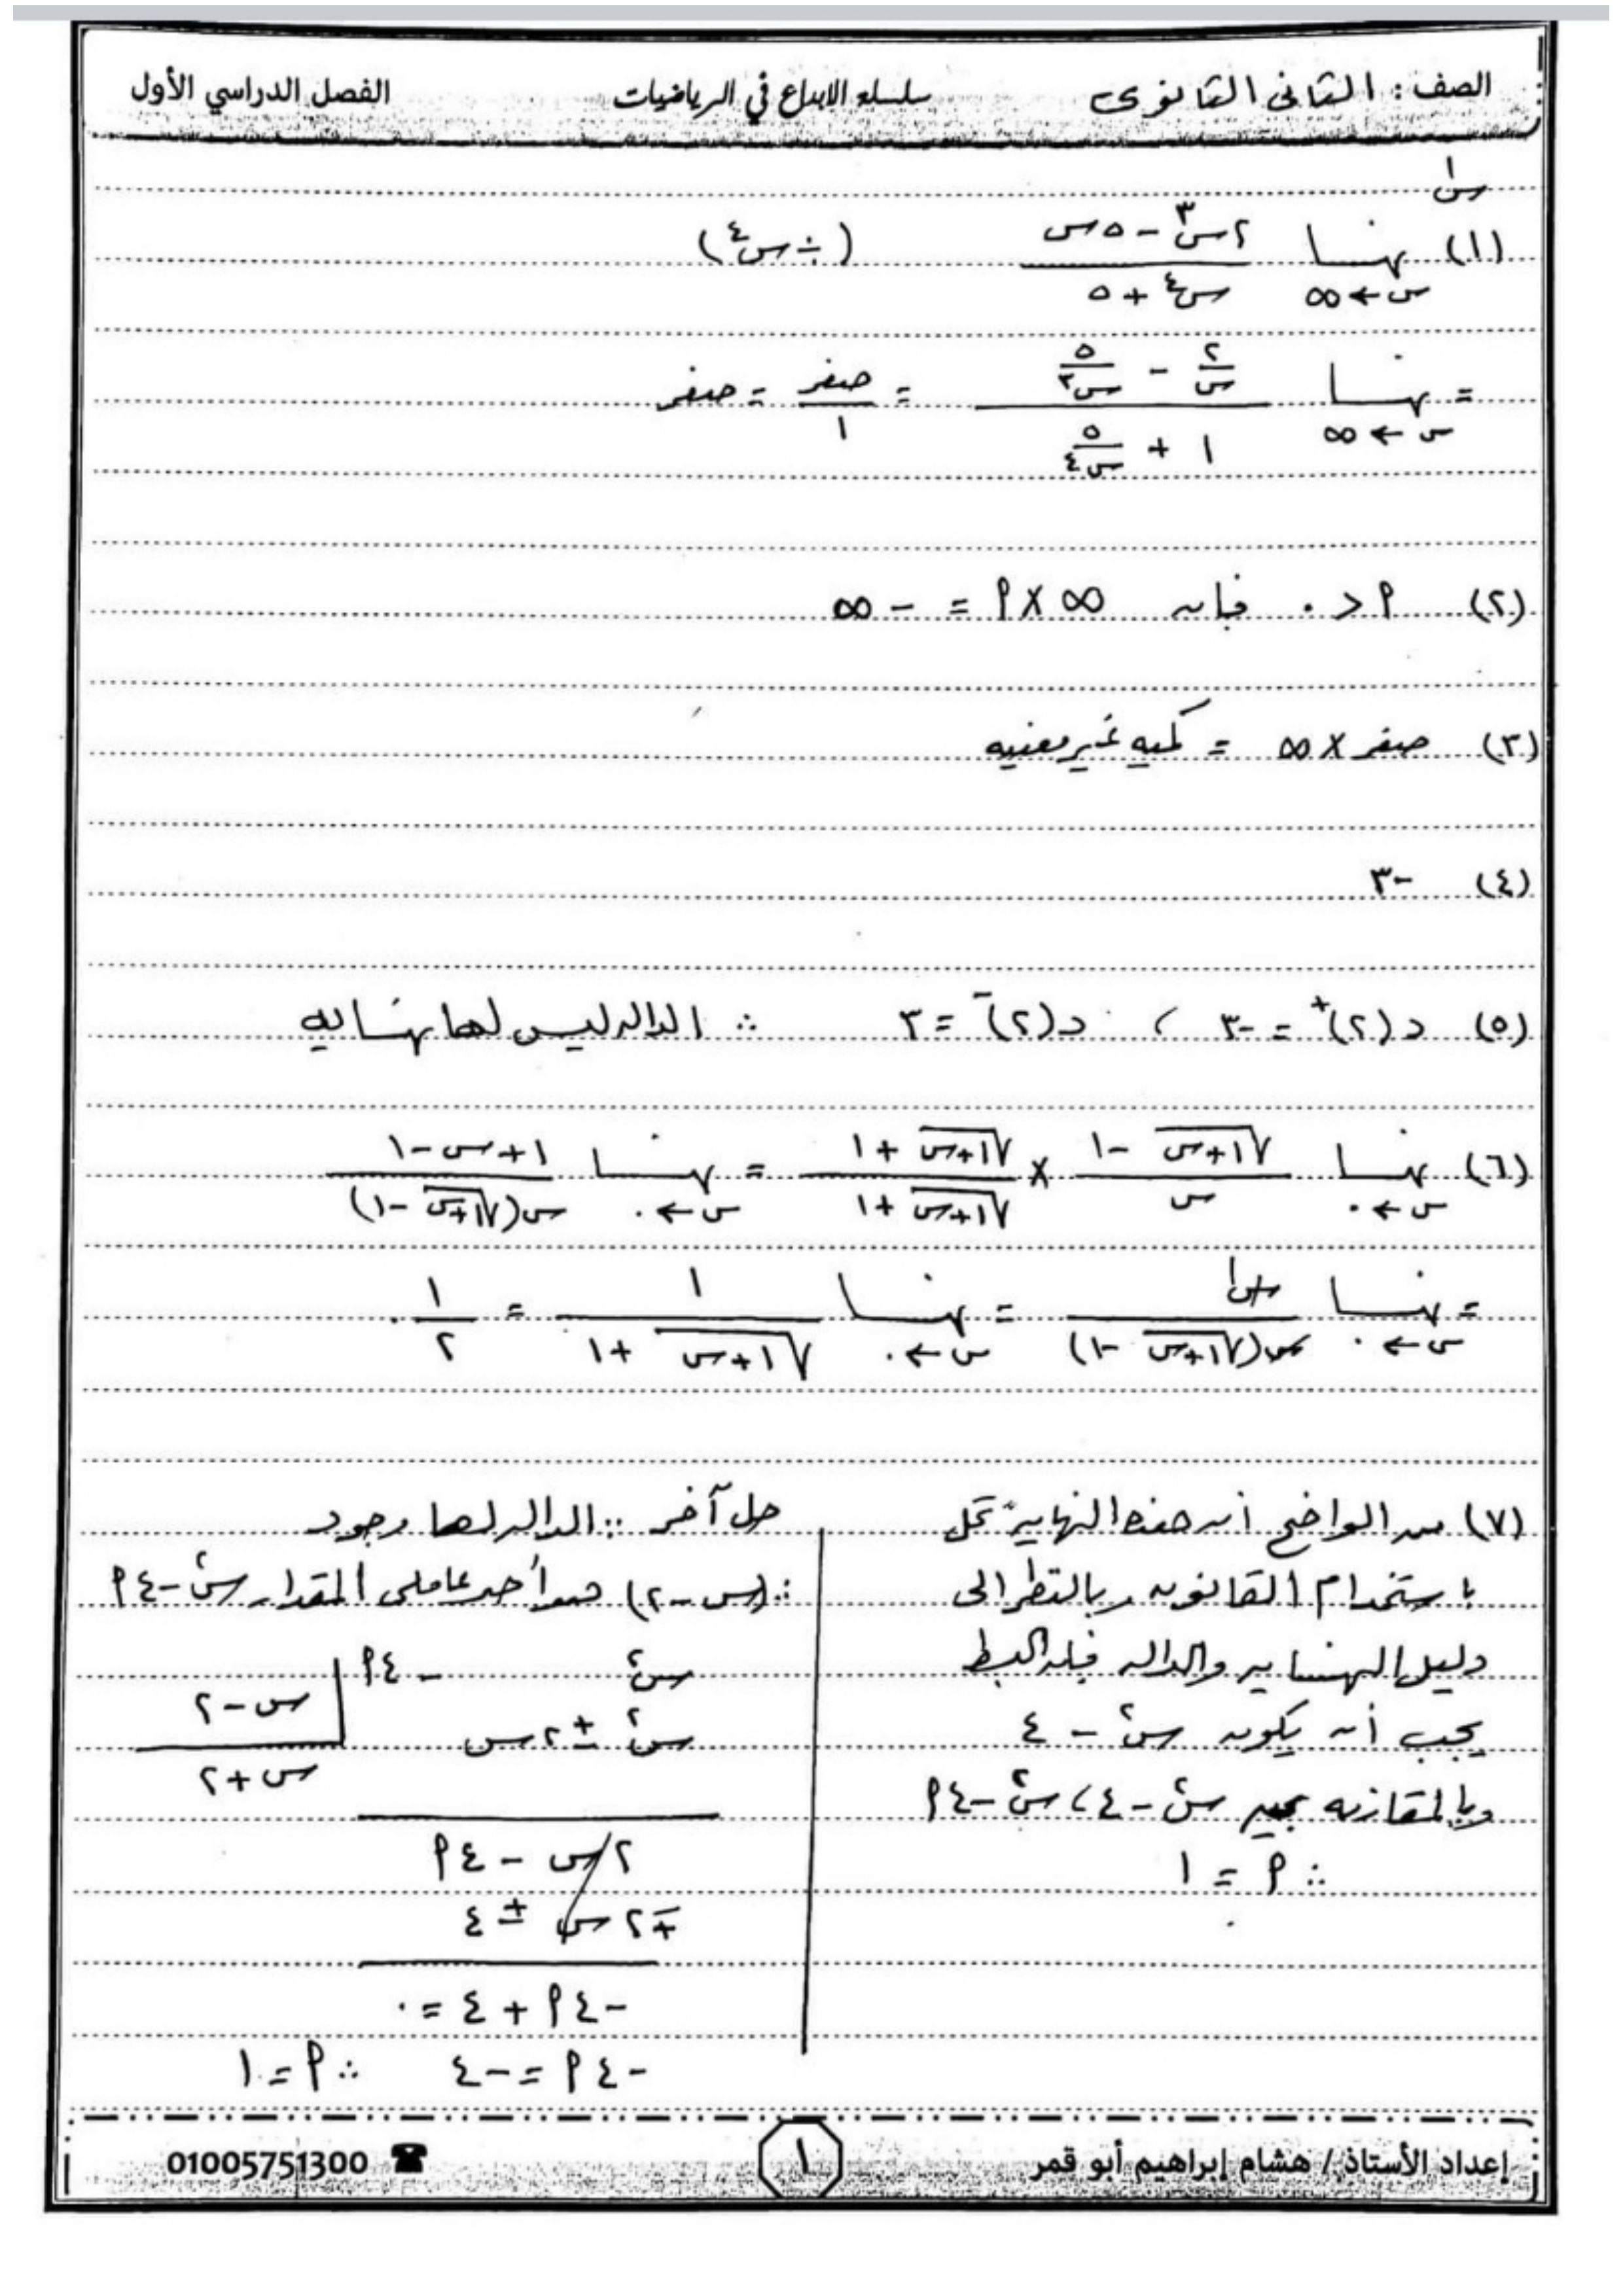 الصف : الثانى الثانوى سلسلة الإبداع في الرياضيات الفصل الدراسي الأول
س١
(١) نهـــا س←∞ (٢س٣ - ٥س)/(س٤ + ٥) (÷ س٤)
= نهـــا س←∞ (٢/س - ٥/س٣)/(١ + ٥/س٤) = صفر/١ = صفر
(٢) P < ٠ فإن ∞ × P = - ∞
(٣) صفر × ∞ = كميه غير معنيه
(٤) -٣
(٥) د(٢)+ = -٣ ، د(٢)- = ٣ ∴ الداله ليس لها نهــايه
(٦) نهـــا س←٠ (√(١+س) - ١)/س × (√(١+س) + ١)/(√(١+س) + ١) = نهـــا س←٠ (١+س-١)/(س(√(١+س) - ١))
= نهـــا س←٠ س/(س(√(١+س) - ١)) = نهـــا س←٠ ١/(√(١+س) + ١) = ١/٢
(٧) من الواضح أن هذه النهاية تحل
باستخدام القانون وبالنظر الى
دليل النهــايه والداله فإن البسط
يجب أن يكون س٢ - ٤
وبالمقارنه بين س٢ - ٤ ، س٢ - ٤P
∴ P = ١
حل آخر ∵ الداله لها وجود
∴ (س - ٢) هو أحد عاملى المقدار س٢ - ٤P
س٢ - ٤P
س - ٢
س٢ ± ٢س
س + ٢
٢س - ٤P
∓ ٢س ± ٤
-٤P + ٤ = ٠
-٤P = -٤ ∴ P = ١
إعداد الأستاذ / هشام إبراهيم أبو قمر ١ ☎ 01005751300